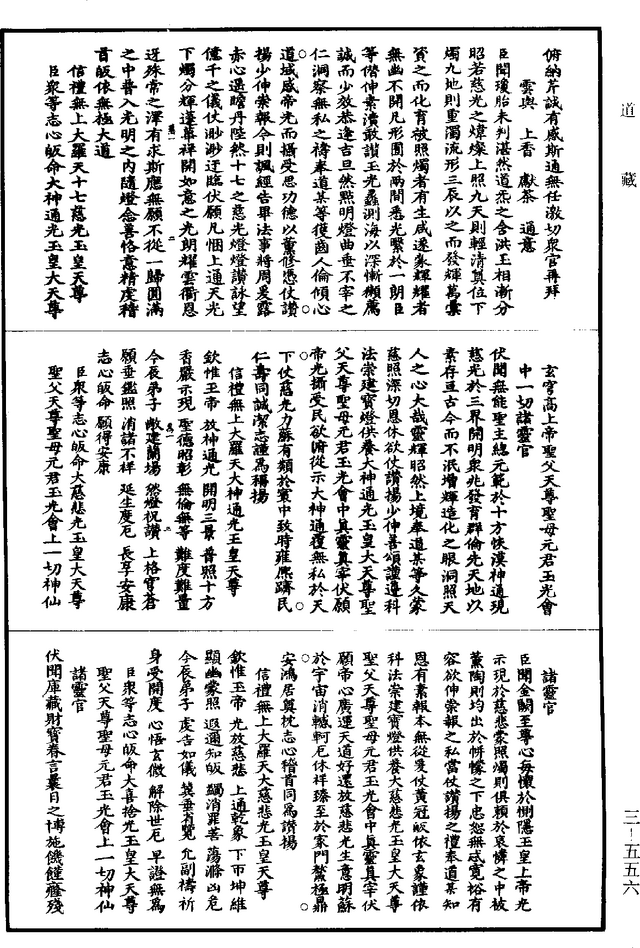 道藏
俯納芹誠有感斯通無任激切衆官再拜
雲輿　上香　獻茶　通意
臣聞瓊胎未判湛然道炁之含洪玉相漸分
昭若慈光之煒燦上照九天則輕清奠位下
燭九地則重濁流形三辰以之而發輝萬彙
資之而化育被照燭者有生咸遂蒙輝耀者
無幽不開凡形囿於兩間悉光繄於一朗臣
等偕伸素瀆敢讚玉光蠡測海以深慚獺薦
誠而少放恭逢吉旦然點明燈曲垂不宰之
仁洞察無私之禱奉道某等獲齒人倫傾心
道域感帝光而攝受思功德以薰修憑仗讚
揚少伸崇報今則諷經告畢法事將周爰露
赤心遙瞻丹陛然十七之慈光燈燈讚詠望
億千之儀仗眇眇迂臨伏願凡悃上通天光
下燭分輝蓬蓽祥開如意之光朗耀雲衢恩
迓殊常之澤有求斯應無願不從一歸圓滿
之中普入光明之內隨燈念善恪意精虔稽
首皈依無極大道
信禮無上大羅天十七慈光玉皇大天尊
臣衆等志心皈命大神通光玉皇大天尊
玄穹高上帝聖父天尊聖母元君玉光會
中一切諸靈官
伏聞無能聖主總元範於十方恢漠神通現
慈光於三界開明衆兆發育群倫先天地以
素存亘古今而不泯增輝造化之眼洞照天
人之心大哉靈輝昭然上境奉道某等久蒙
慈照深切恩休欲仗讚揚少伸善頌謹遵科
法崇建寶燈供養大神通光玉皇大天尊聖
父天尊聖母元君玉光會中真靈真宰伏願
帝光攝受民欲俯從示大神通覆無私於天
下仗慈光力蘇有類於寰中致時雍熙躋民
仁壽同誠潔志謹爲稱揚
信禮無上大羅天大神通光玉皇大天尊
欽惟玉帝　放神通光　開明三景　普照十方
香嚴示現　聖德昭彰　無倫無等　難度難量
今辰弟子　敞建蘭場　然燈祝讚　上格穹蒼
願垂鑑照　消諸不祥　延生度厄　長享安康
志心皈命　願得安康
臣衆等志心皈命大慈悲光玉皇大天尊
聖父天尊聖母元君玉光會上一切神仙
諸靈官
臣聞金闕至尊心每懷於惻隱玉皇上帝光
示現於慈悲蒙照燭則俱賴於哀憐之中被
薰陶則均出於帡幪之下忠恕無忒寬裕有
容欲伸崇報之私當仗讚揚之禮奉道某知
恩有素報本無從爰仗黃冠皈依玄象謹依
科法崇建寶燈供養大慈悲光玉皇大天尊
聖父天尊聖母元君玉光會中真靈真宰伏
願帝心廣運天道好還放慈悲光生意明蘇
於宇宙消轗軻厄休祥臻至於家門鰲極鼎
安鴻居奠枕志心稽首同爲讚揚
信禮無上大羅天大慈悲光玉皇大天尊
欽惟玉帝　光放慈悲　上通乾象　下帀坤維
顯幽蒙照　遐邇知皈　蠲消罪苦　蕩滌凶危
今辰弟子　虔告如儀　冀垂省覽　允副禱祈
身受開度　心悟玄微　解除世厄　早證無爲
臣衆等志心皈命大喜捨光玉皇大天尊
聖父天尊聖母元君玉光會上一切神仙
諸靈官
伏聞庫藏財寶眷言曩日之博施饑饉癃殘
三—五五六